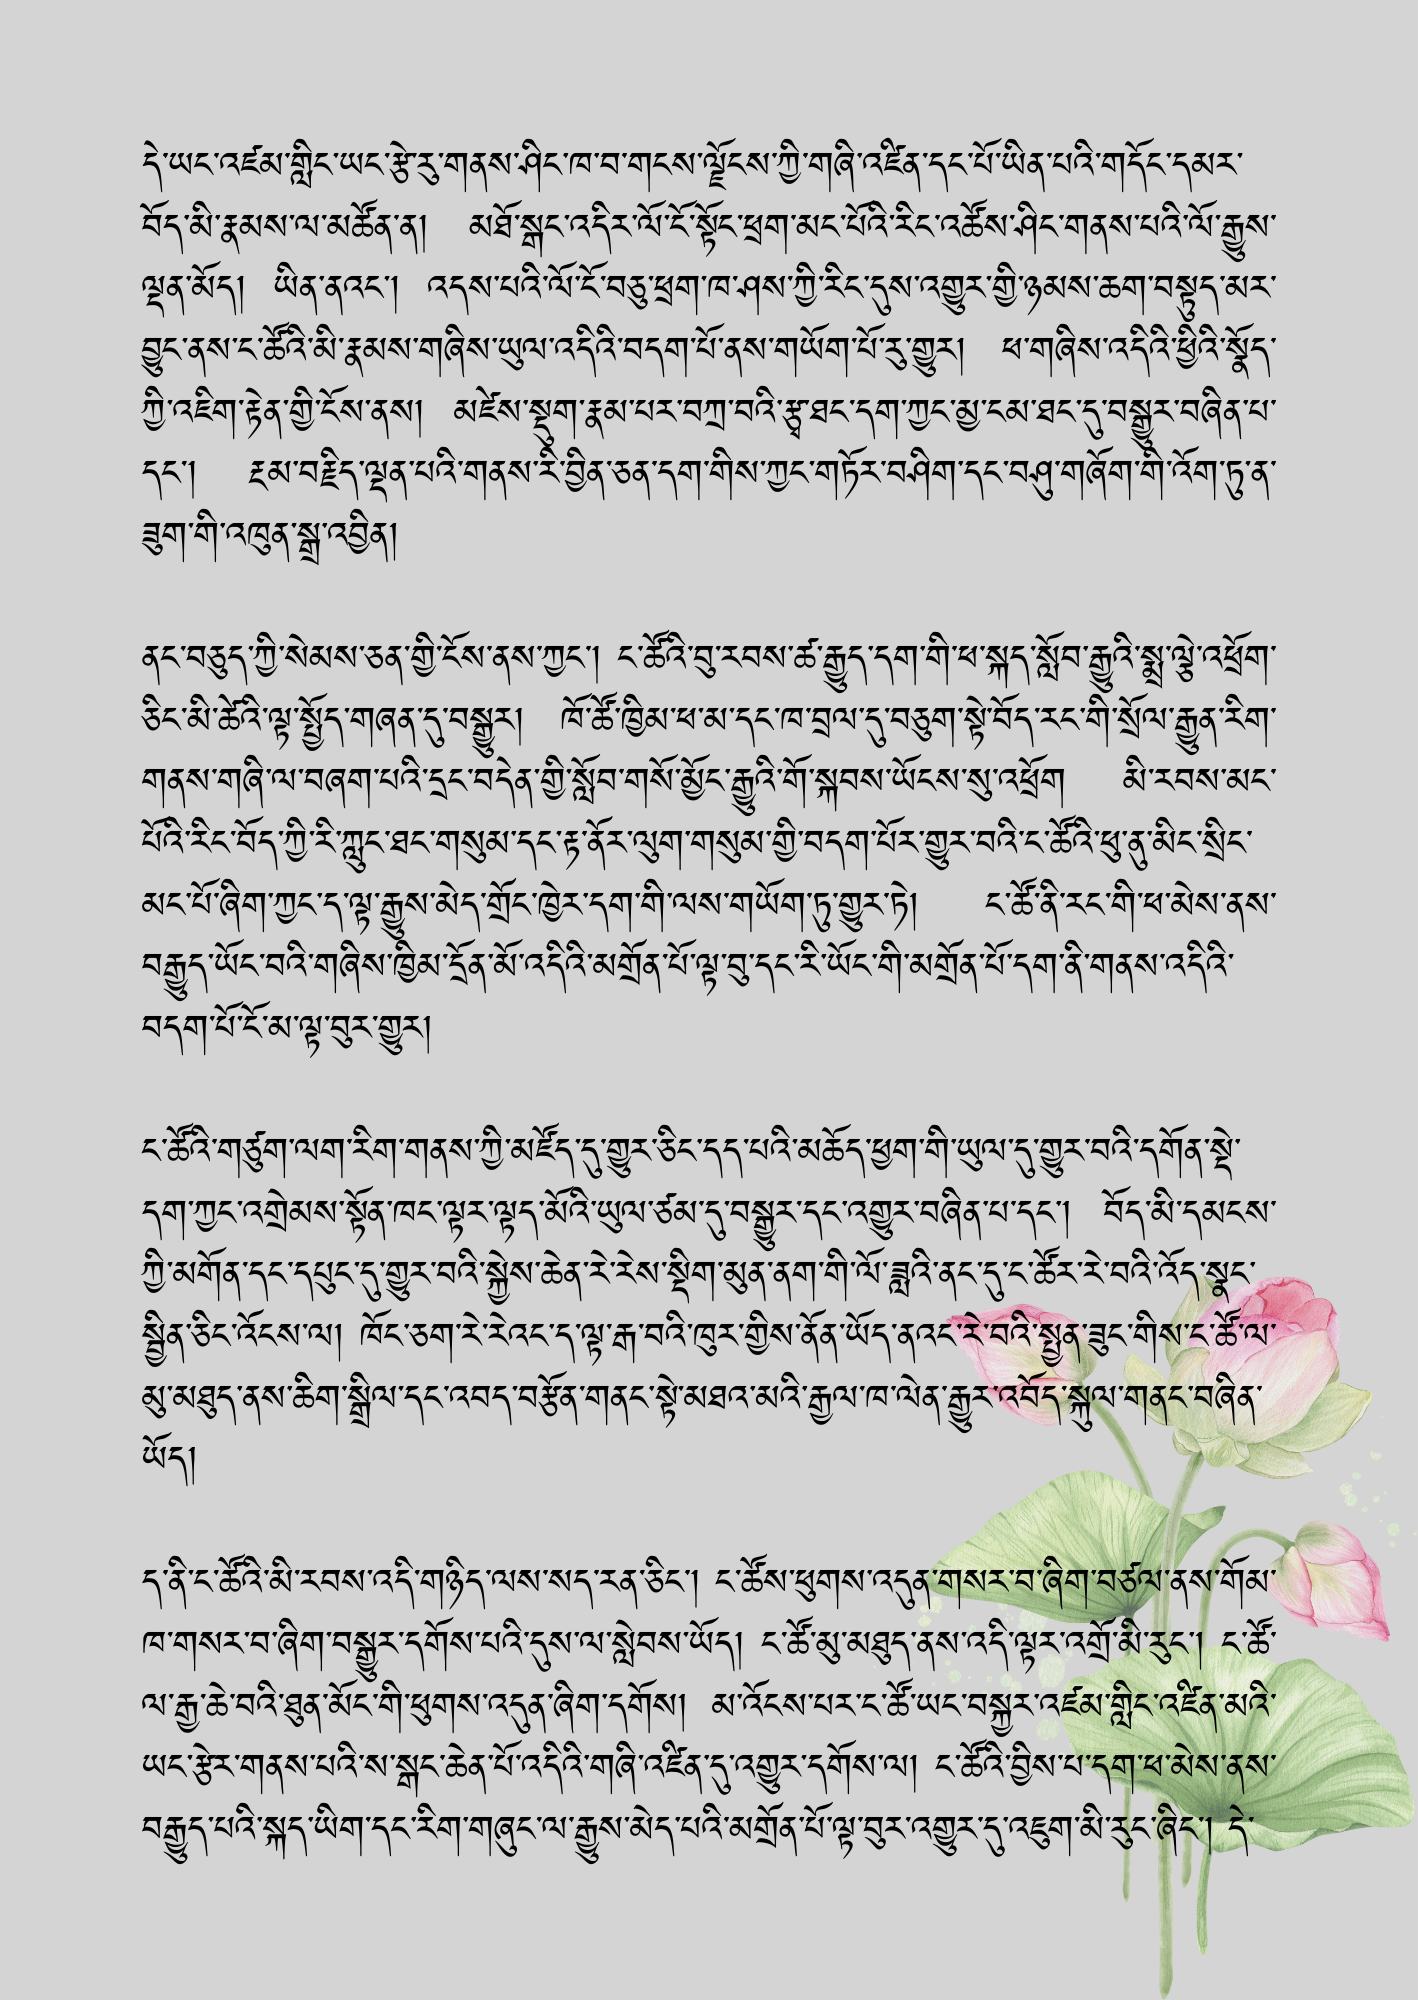 དེ་ཡང་འཛམ་གླིང་ཡང་རྩེ་རུ་གནས་ཤིང་ཁ་བ་གངས་ལྗོངས་ཀྱི་གཞི་འཛིན་དང་པོ་ཡིན་པའི་གདོང་དམར་
བོད་མི་རྣམས་ལ་མཚོན་ན། མཐོ་སྒང་འདིར་ལོ་ངོ་སྟོང་ཕྲག་མང་པོའི་རིང་འཚོས་ཤིང་གནས་པའི་ལོ་རྒྱུས་
ལྡན་མོད། ཡིན་ནའང་། འདས་པའི་ལོ་ངོ་བཅུ་ཕྲག་ཁ་ཤས་ཀྱི་རིང་དུས་འགྱུར་གྱི་ཉམས་ཆག་བསྟུད་མར་
བྱུང་ནས་ང་ཚོའི་མི་རྣམས་གཞིས་ཡུལ་འདིའི་བདག་པོ་ནས་གཡོག་པོ་རུ་གྱུར། ཕ་གཞིས་འདིའི་ཕྱིའི་སྣོད་
ཀྱི་འཇིག་རྟེན་གྱི་ངོས་ནས། མཛེས་སྡུག་རྣམ་པར་བཀྲ་བའི་རྩྭ་ཐང་དག་ཀྱང་མྱ་ངམ་ཐང་དུ་བསྒྱུར་བཞིན་པ་
དང་། རྔམ་བརྗིད་ལྡན་པའི་གནས་རི་བྱིན་ཅན་དག་གིས་ཀྱང་གཏོར་བཤིག་དང་བཤུ་གཞོག་གི་འོག་ཏུ་ན་
ཟུག་གི་འཁུན་སྒྲ་འབྱིན།
ནང་བཅུད་ཀྱི་སེམས་ཅན་གྱི་ངོས་ནས་ཀྱང་། ང་ཚོའི་བུ་རབས་ཚ་རྒྱུད་དག་གི་ཕ་སྐད་སློབ་རྒྱུའི་སྨྲ་ལྕེ་འཕྲོག་
ཅིང་མི་ཚེའི་ལྟ་སྤྱོད་གཞན་དུ་བསྒྱུར། ཁོ་ཚོ་ཁྱིམ་ཕ་མ་དང་ཁ་བྲལ་དུ་བཅུག་སྟེ་བོད་རང་གི་སྲོལ་རྒྱུན་རིག་
གནས་གཞི་ལ་བཞག་པའི་དྲང་བདེན་གྱི་སློབ་གསོ་མྱོང་རྒྱུའི་གོ་སྐབས་ཡོངས་སུ་འཕྲོག མི་རབས་མང་
པོའི་རིང་བོད་ཀྱི་རི་ཀླུང་ཐང་གསུམ་དང་རྟ་ནོར་ལུག་གསུམ་གྱི་བདག་པོར་གྱུར་བའི་ང་ཚོའི་ཕུ་ནུ་མིང་སྲིང་
མང་པོ་ཞིག་ཀྱང་ད་ལྟ་རྒྱུས་མེད་གྲོང་ཁྱེར་དག་གི་ལས་གཡོག་ཏུ་གྱུར་ཏེ། ང་ཚོ་ནི་རང་གི་ཕ་མེས་ནས་
བརྒྱུད་ཡོང་བའི་གཞིས་ཁྱིམ་དྲོན་མོ་འདིའི་མགྲོན་པོ་ལྟ་བུ་དང་རི་ཡོང་གི་མགྲོན་པོ་དག་ནི་གནས་འདིའི་
བདག་པོ་ངོ་མ་ལྟ་བུར་གྱུར།
ང་ཚོའི་གཙུག་ལག་རིག་གནས་ཀྱི་མཛོད་དུ་གྱུར་ཅིང་དད་པའི་མཆོད་ཕྱག་གི་ཡུལ་དུ་གྱུར་བའི་དགོན་སྡེ་
དག་ཀྱང་འགྲེམས་སྟོན་ཁང་ལྟར་ལྟད་མོའི་ཡུལ་ཙམ་དུ་བསྒྱུར་དང་འགྱུར་བཞིན་པ་དང་། བོད་མི་དམངས་
ཀྱི་མགོན་དང་དཔུང་དུ་གྱུར་བའི་སྐྱེས་ཆེན་རེ་རེས་སྡིག་མུན་ནག་གི་ལོ་ཟླའི་ནང་དུ་ང་ཚོར་རེ་བའི་འོད་སྣང་
སྦྱིན་ཅིང་འོངས་ལ། ཁོང་ཅག་རེ་རེའང་ད་ལྟ་རྒ་བའི་ཁུར་གྱིས་ནོན་ཡོད་ནའང་རེ་བའི་སྤྱན་ཟུང་གིས་ང་ཚོ་ལ་
མུ་མཐུད་ནས་ཆིག་སྒྲིལ་དང་འབད་བརྩོན་གནང་སྟེ་མཐའ་མའི་རྒྱལ་ཁ་ལེན་རྒྱུར་འབོད་སྐུལ་གནང་བཞིན་
ཡོད།
ད་ནི་ང་ཚོའི་མི་རབས་འདི་གཉིད་ལས་སད་རན་ཅིང་། ང་ཚོས་ཕུགས་འདུན་གསར་བ་ཞིག་བཙལ་ནས་གོམ་
ཁ་གསར་བ་ཞིག་བསྒྱུར་དགོས་པའི་དུས་ལ་སླེབས་ཡོད། ང་ཚོ་མུ་མཐུད་ནས་འདི་ལྟར་འགྲོ་མི་རུང་། ང་ཚོ་
ལ་རྒྱ་ཆེ་བའི་ཐུན་མོང་གི་ཕུགས་འདུན་ཞིག་དགོས། མ་འོངས་པར་ང་ཚོ་ཡང་བསྐྱར་འཛམ་གླིང་འཛིན་མའི་
ཡང་རྩེར་གནས་པའི་ས་སྒང་ཆེན་པོ་འདིའི་གཞི་འཛིན་དུ་འགྱུར་དགོས་ལ། ང་ཚོའི་བྱིས་པ་དག་ཕ་མེས་ནས་
བརྒྱུད་པའི་སྐད་ཡིག་དང་རིག་གཞུང་ལ་རྒྱུས་མེད་པའི་མགྲོན་པོ་ལྟ་བུར་འགྱུར་དུ་འཇུག་མི་རུང་ཞིང་། དེ་